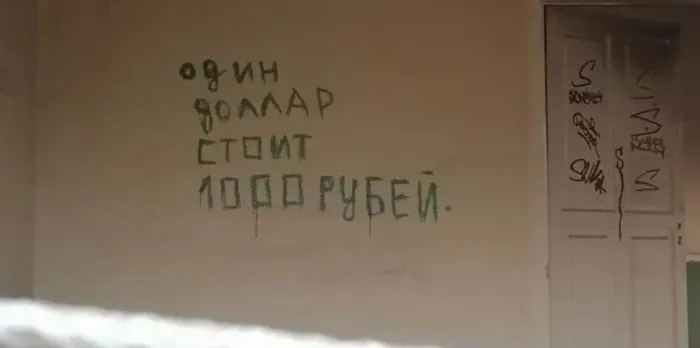 один
доллар
стоит
1000 рубей.